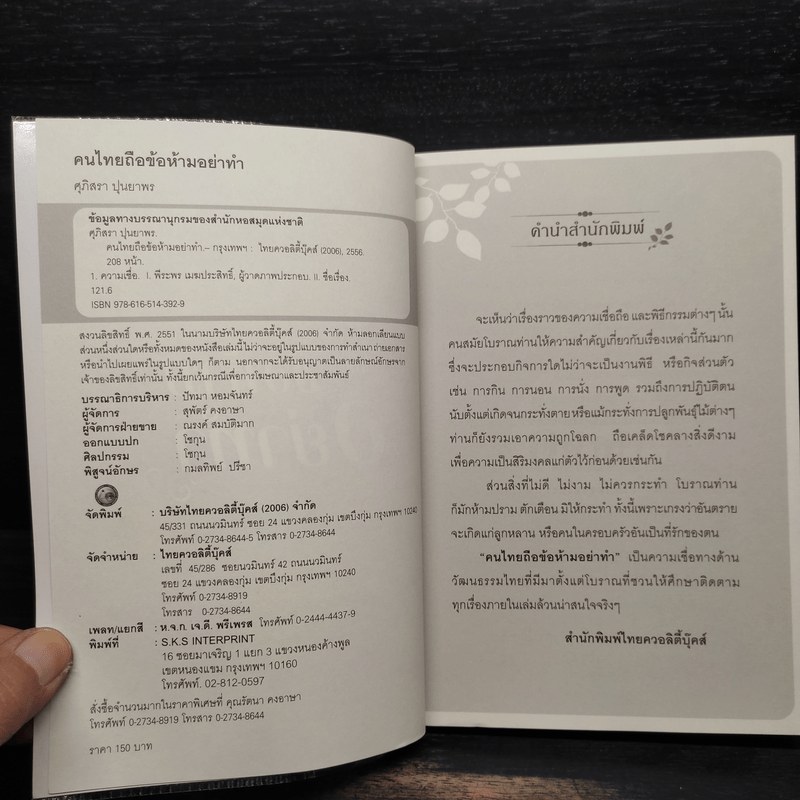 คนไทยถือข้อห้ามอย่าทำ
ศุภิสรา ปุนยาพร
ข้อมูลทางบรรณานุกรมของสำนักหอสมุดแห่งชาติ
ศุภิสรา ปุนยาพร.
คนไทยถือข้อห้ามอย่าทำ.– กรุงเทพฯ : ไทยควอลิตี้บุ๊คส์ (2006), 2556.
208 หน้า.
1. ความเชื่อ. I. พีระพร เมฆประสิทธิ์, ผู้วาดภาพประกอบ. II. ชื่อเรื่อง.
121.6
ISBN 978-616-514-392-9
สงวนลิขสิทธิ์ พ.ศ. 2551 ในนามบริษัทไทยควอลิตี้บุ๊คส์ (2006) จำกัด ห้ามลอกเลียนแบบ
ส่วนหนึ่งส่วนใดหรือทั้งหมดของหนังสือเล่มนี้ไม่ว่าจะอยู่ในรูปแบบของการทำสำเนา ถ่ายเอกสาร
หรือนำไปเผยแพร่ในรูปแบบใดๆ ก็ตาม นอกจากจะได้รับอนุญาตเป็นลายลักษณ์อักษรจาก
เจ้าของลิขสิทธิ์เท่านั้น ทั้งนี้ยกเว้นกรณีเพื่อการโฆษณาและประชาสัมพันธ์
บรรณาธิการบริหาร : ปัทมา หอมจันทร์
ผู้จัดการ : สุพัตร์ คงอาษา
ผู้จัดการฝ่ายขาย : ณรงค์ สมบัติมาก
ออกแบบปก : โชกุน
ศิลปกรรม : โชกุน
พิสูจน์อักษร : กมลทิพย์ ปรีชา
จัดพิมพ์ : บริษัทไทยควอลิตี้บุ๊คส์ (2006) จำกัด
45/331 ถนนนวมินทร์ ซอย 24 แขวงคลองกุ่ม เขตบึงกุ่ม กรุงเทพฯ 10240
โทรศัพท์ 0-2734-8644-5 โทรสาร 0-2734-8644
จัดจำหน่าย : ไทยควอลิตี้บุ๊คส์
เลขที่ 45/286 ซอยนวมินทร์ 42 ถนนนวมินทร์
ซอย 24 แขวงคลองกุ่ม เขตบึงกุ่ม กรุงเทพฯ 10240
โทรศัพท์ 0-2734-8919
โทรสาร 0-2734-8644
เพลท/แยกสี : ห.จ.ก. เจ.ดี. พรีเพรส โทรศัพท์ 0-2444-4437-9
พิมพ์ที่ : S.K.S INTERPRINT
16 ซอยมาเจริญ 1 แยก 3 แขวงหนองค้างพลู
เขตหนองแขม กรุงเทพฯ 10160
โทรศัพท์. 02-812-0597
สั่งซื้อจำนวนมากในราคาพิเศษที่ คุณรัตนา คงอาษา
โทรศัพท์ 0-2734-8919 โทรสาร 0-2734-8644
ราคา 150 บาท
คำนำสำนักพิมพ์
จะเห็นว่าเรื่องราวของความเชื่อถือ และพิธีกรรมต่างๆ นั้น
คนสมัยโบราณท่านให้ความสำคัญเกี่ยวกับเรื่องเหล่านี้กันมาก
ซึ่งจะประกอบกิจการใดไม่ว่าจะเป็นงานพิธี หรือกิจส่วนตัว
เช่น การกิน การนอน การนั่ง การพูด รวมถึงการปฏิบัติตน
นับตั้งแต่เกิดจนกระทั่งตาย หรือแม้กระทั่งการปลูกพันธุ์ไม้ต่างๆ
ท่านก็ยังรวมเอาความถูกโฉลก ถือเคล็ดโชคลางสิ่งดีงาม
เพื่อความเป็นสิริมงคลแก่ตัวไว้ก่อนด้วยเช่นกัน
ส่วนสิ่งที่ไม่ดี ไม่งาม ไม่ควรกระทำ โบราณท่าน
ก็มักห้ามปราม ตักเตือน มิให้กระทำ ทั้งนี้เพราะเกรงว่าอันตราย
จะเกิดแก่ลูกหลาน หรือคนในครอบครัวอันเป็นที่รักของตน
“คนไทยถือข้อห้ามอย่าทำ” เป็นความเชื่อทางด้าน
วัฒนธรรมไทยที่มีมาตั้งแต่โบราณที่ชวนให้ศึกษาติดตาม
ทุกเรื่องภายในเล่มล้วนน่าสนใจจริงๆ
สำนักพิมพ์ไทยควอลิตี้บุ๊คส์